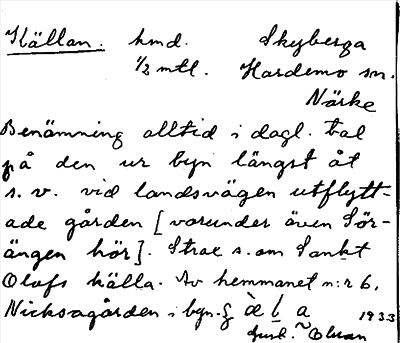 Källan. hmd. Skyberga
1/2 mtl. Hardemo sn.
Närke
Benämning alltid i dagl. tal
på den ur byn längst åt
s. v. vid landsvägen utflytt-
ade gården [varunder även Sör-
ängen hör]. Strax s. om Sankt
Olofs källa. Av hemmanet n:r 6,
Nicksagården i byn.
1933